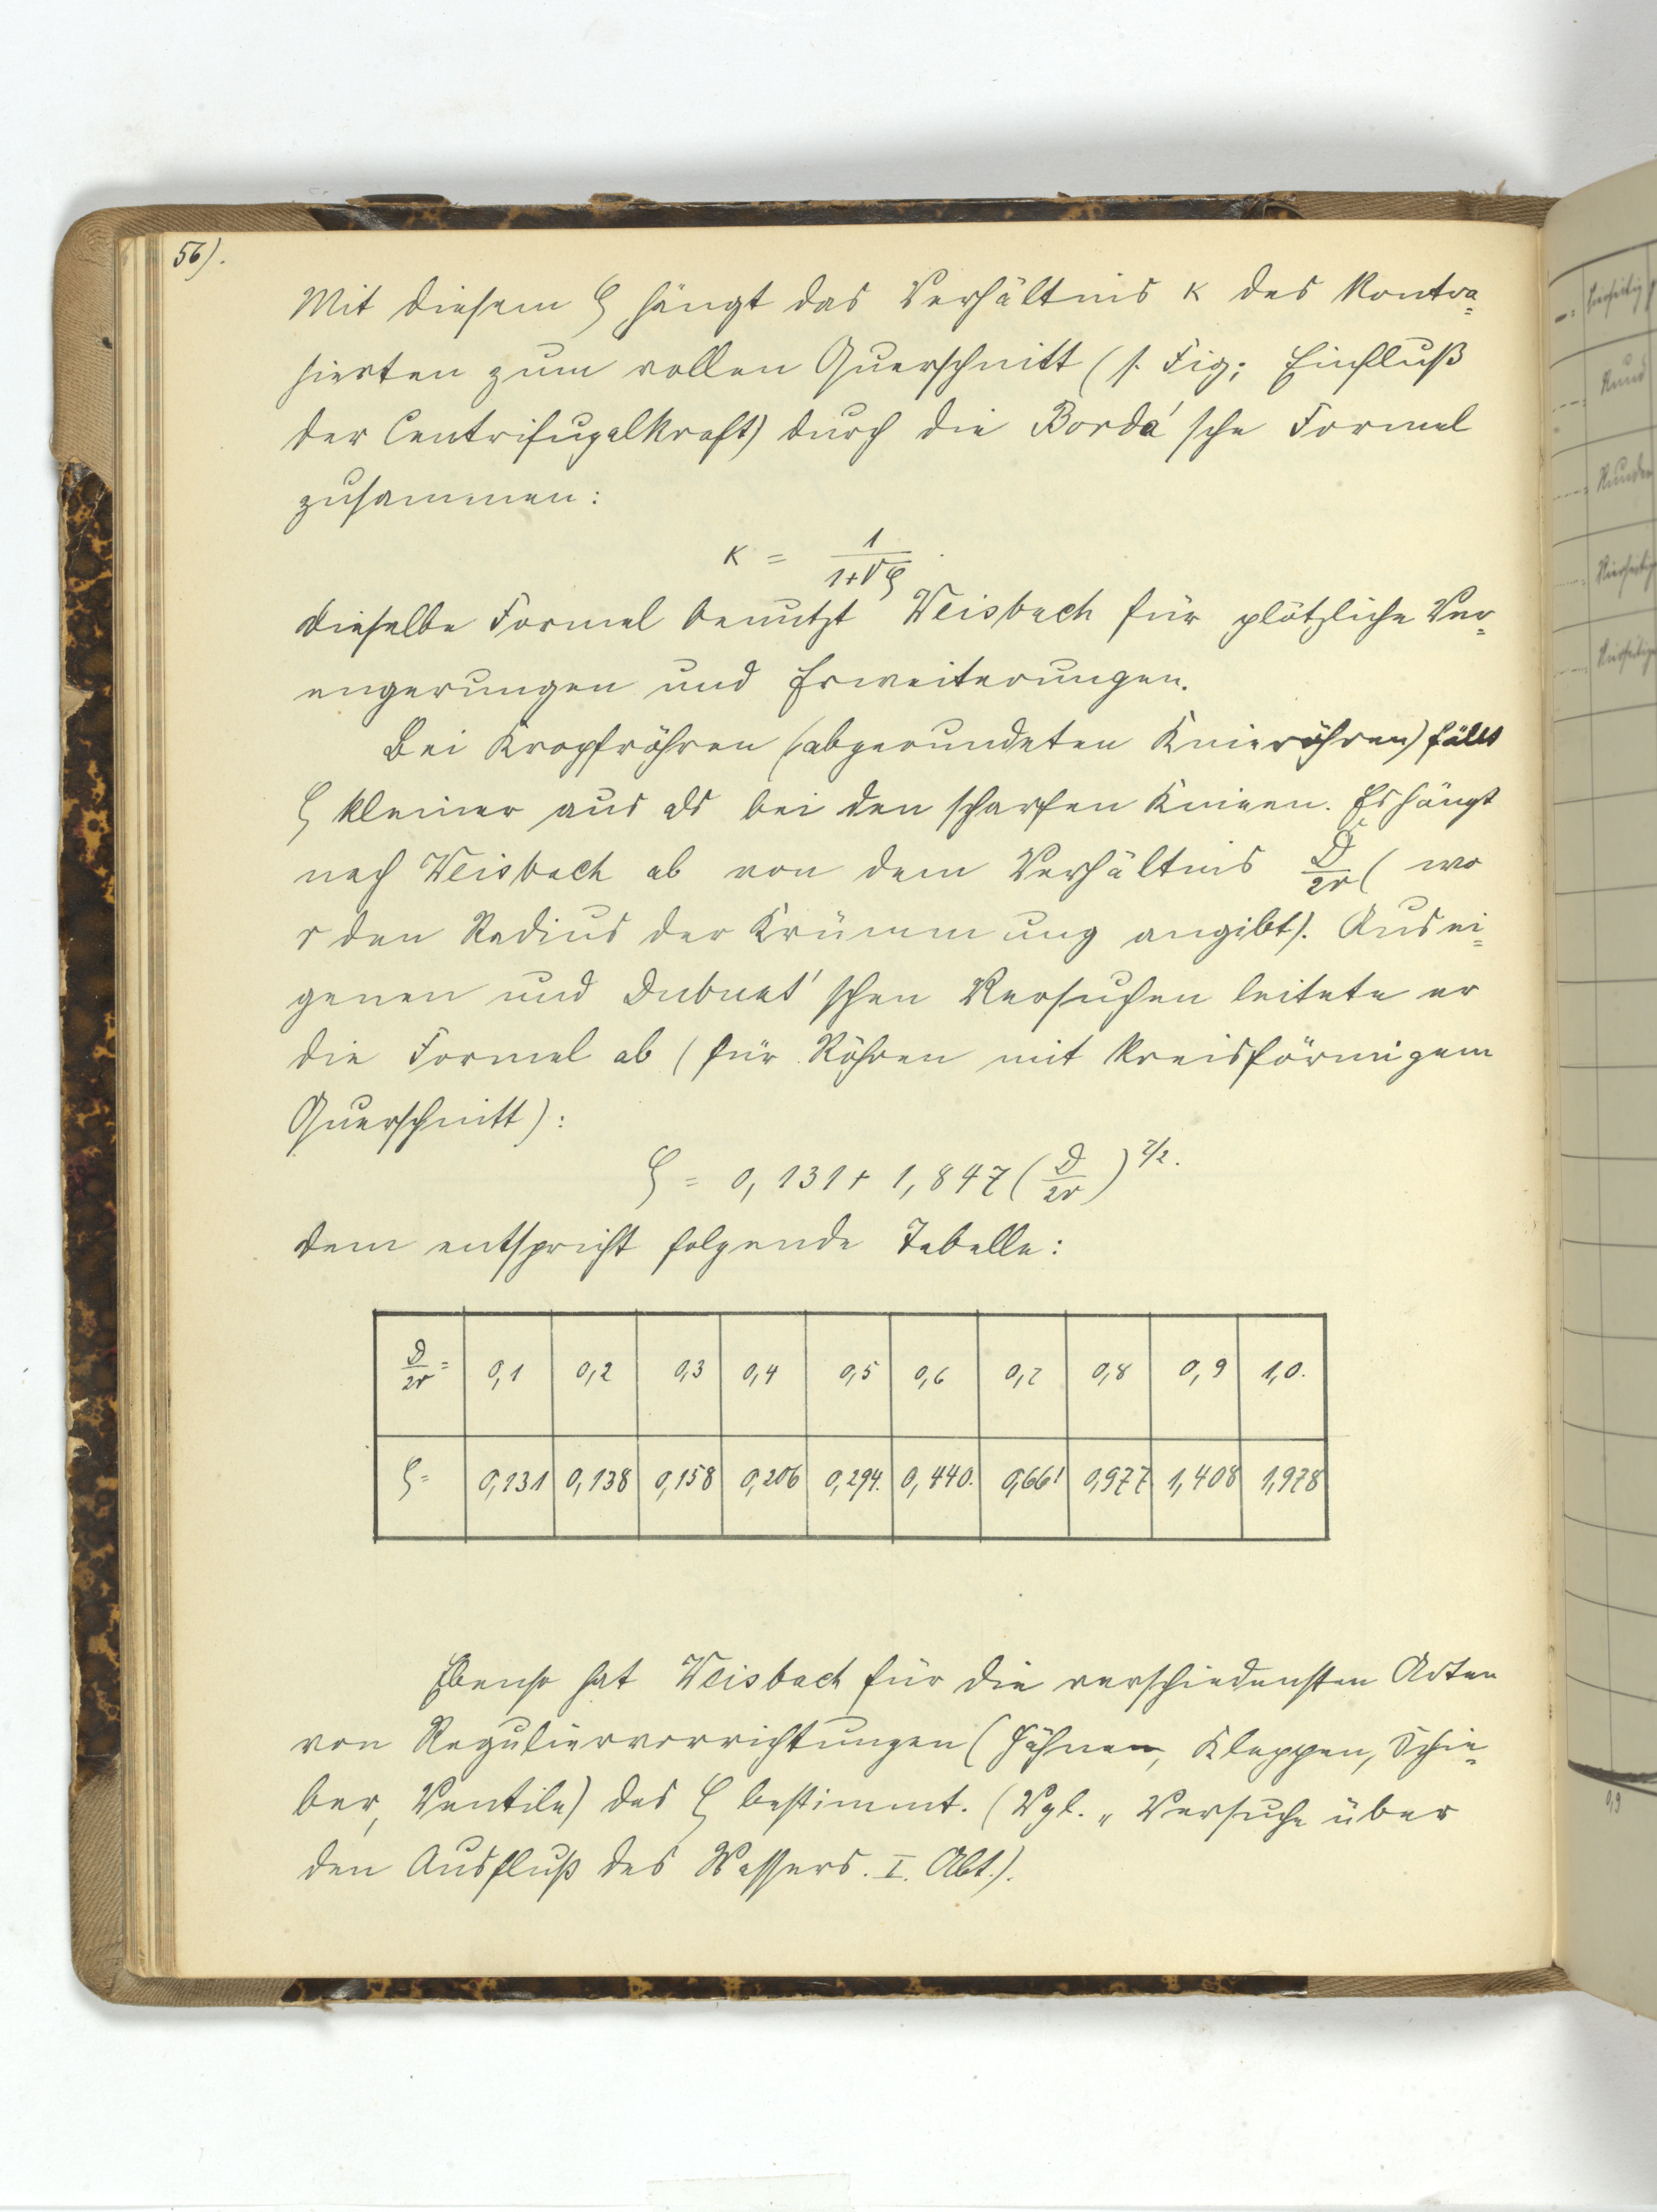 56).
Mit diesem ζ hängt das Verhältnis κ des kontra=
hierten zum vollen Querschnitt (s. Fig; Einfluß
der Centrifugalkraft) durch die Bordá'sche Formel
zusammen:
κ = 1/(1+√ζ)
dieselbe Formel benutzt Weisbach für plötzliche Ver=
engerungen und Erweiterungen.
Bei Kropfröhren (abgerundeten Knieröhren) fällt
ζ kleiner aus als bei den scharfen Knieen. Es hängt
nach Weisbach ab von dem Verhältnis D/2r ( wo
r den Radius der Krümmung angibt). Aus ei=
genen und Dubuat'schen Versuchen leitete er
die Formel ab (für Röhren mit kreisförmigem
Querschnitt):
ζ = 0,131 + 1,847 (D/2r)^7/2.
dem entspricht folgende Tabelle:
D/2r = 0,1 0,2 0,3 0,4 0,5 0,6 0,7 0,8 0,9 1,0.
ζ = 0,131 0,138 0,158 0,206 0,294. 0,440. 0,661 0,977 1,408 1,978
Ebenso hat Weisbach für die verschiedensten Arten
von Reguliervorrichtungen (Hähnen, Klappen, Schie=
ber, Ventile) das ζ bestimmt. (Vgl. „Versuche über
den Ausfluß des Wassers. I. Abt.).
Rund
0,9